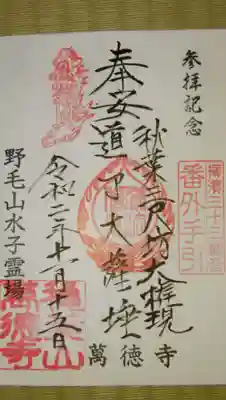 参拝記念
奉安
秋葉三尺坊大権現
道了大薩埵
令和二年十一月十五日
野毛山水子霊場
萬徳寺
番外手引
萬徳寺